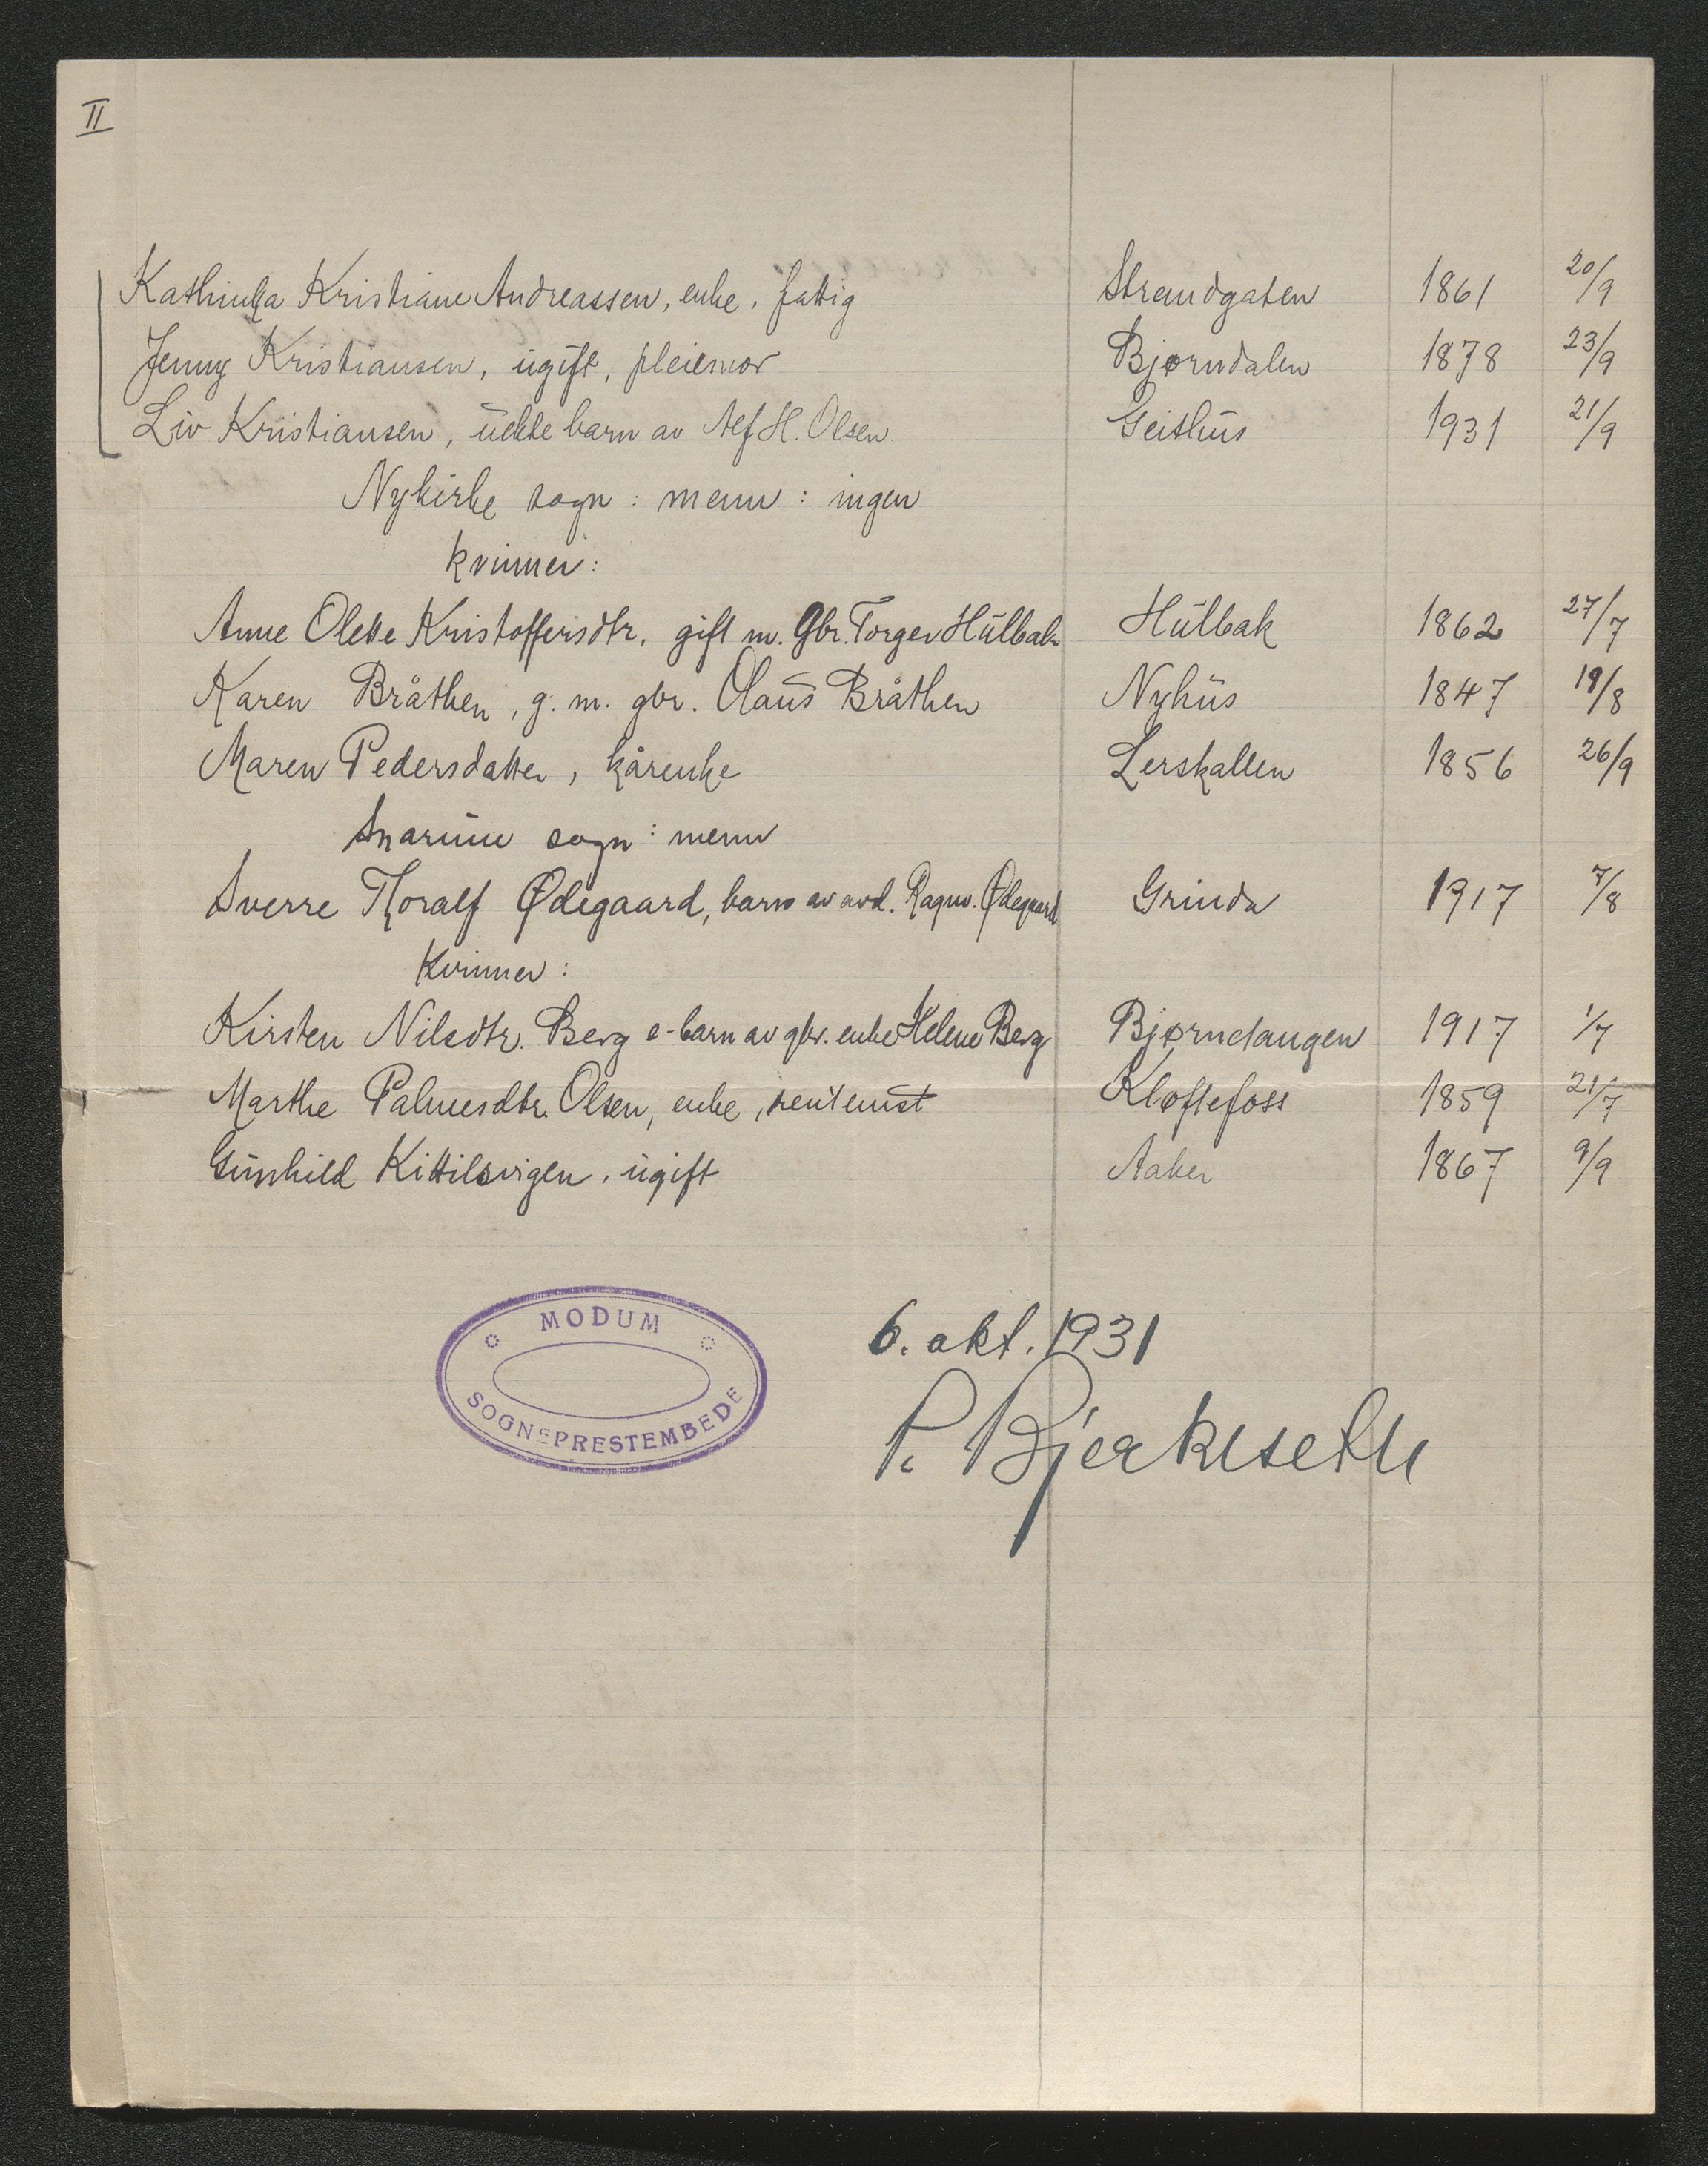 II
Kathinka Kristiane Andreassen, enke, fattig Strandgaten 1861 20/9
Jenny Kristiansen, ugift, pleiemor Bjørndalen 1878 23/9
Liv Kristiansen, uekte barn av Alf H. Olsen. Geithus 1931 21/9
Nykirke sogn : menn : ingen
kvinner:
Anne Olette Kristoffersdtr. gift m. Gbr. Torger Hulbak Hulbak 1862 27/7
Karen Bråthen, g. m. gbr. Olaus Bråthen Nyhus 1847 19/8
Maren Pedersdatter, kårenke Lerskallen 1856 26/9
Snarum sogn : menn
Sverre Thoralf Ødegaard, barn av avd. Ragnv. Ødegaard Grinda 1917 7/8
Kvinner :
Kirsten Nilsdtr. Berg e-barn av gbr. enke Helene Berg Bjørndangen 1917 1/7
Marthe Palmesdtr. Olsen, enke, Kløftefoss 1859 21/7
Gunhild Kittilsvigen, ugift Aaker 1867 9/9
MODUM
SOGNEPRESTEMBEDE
6. okt. 1931
P. Bjerkseth